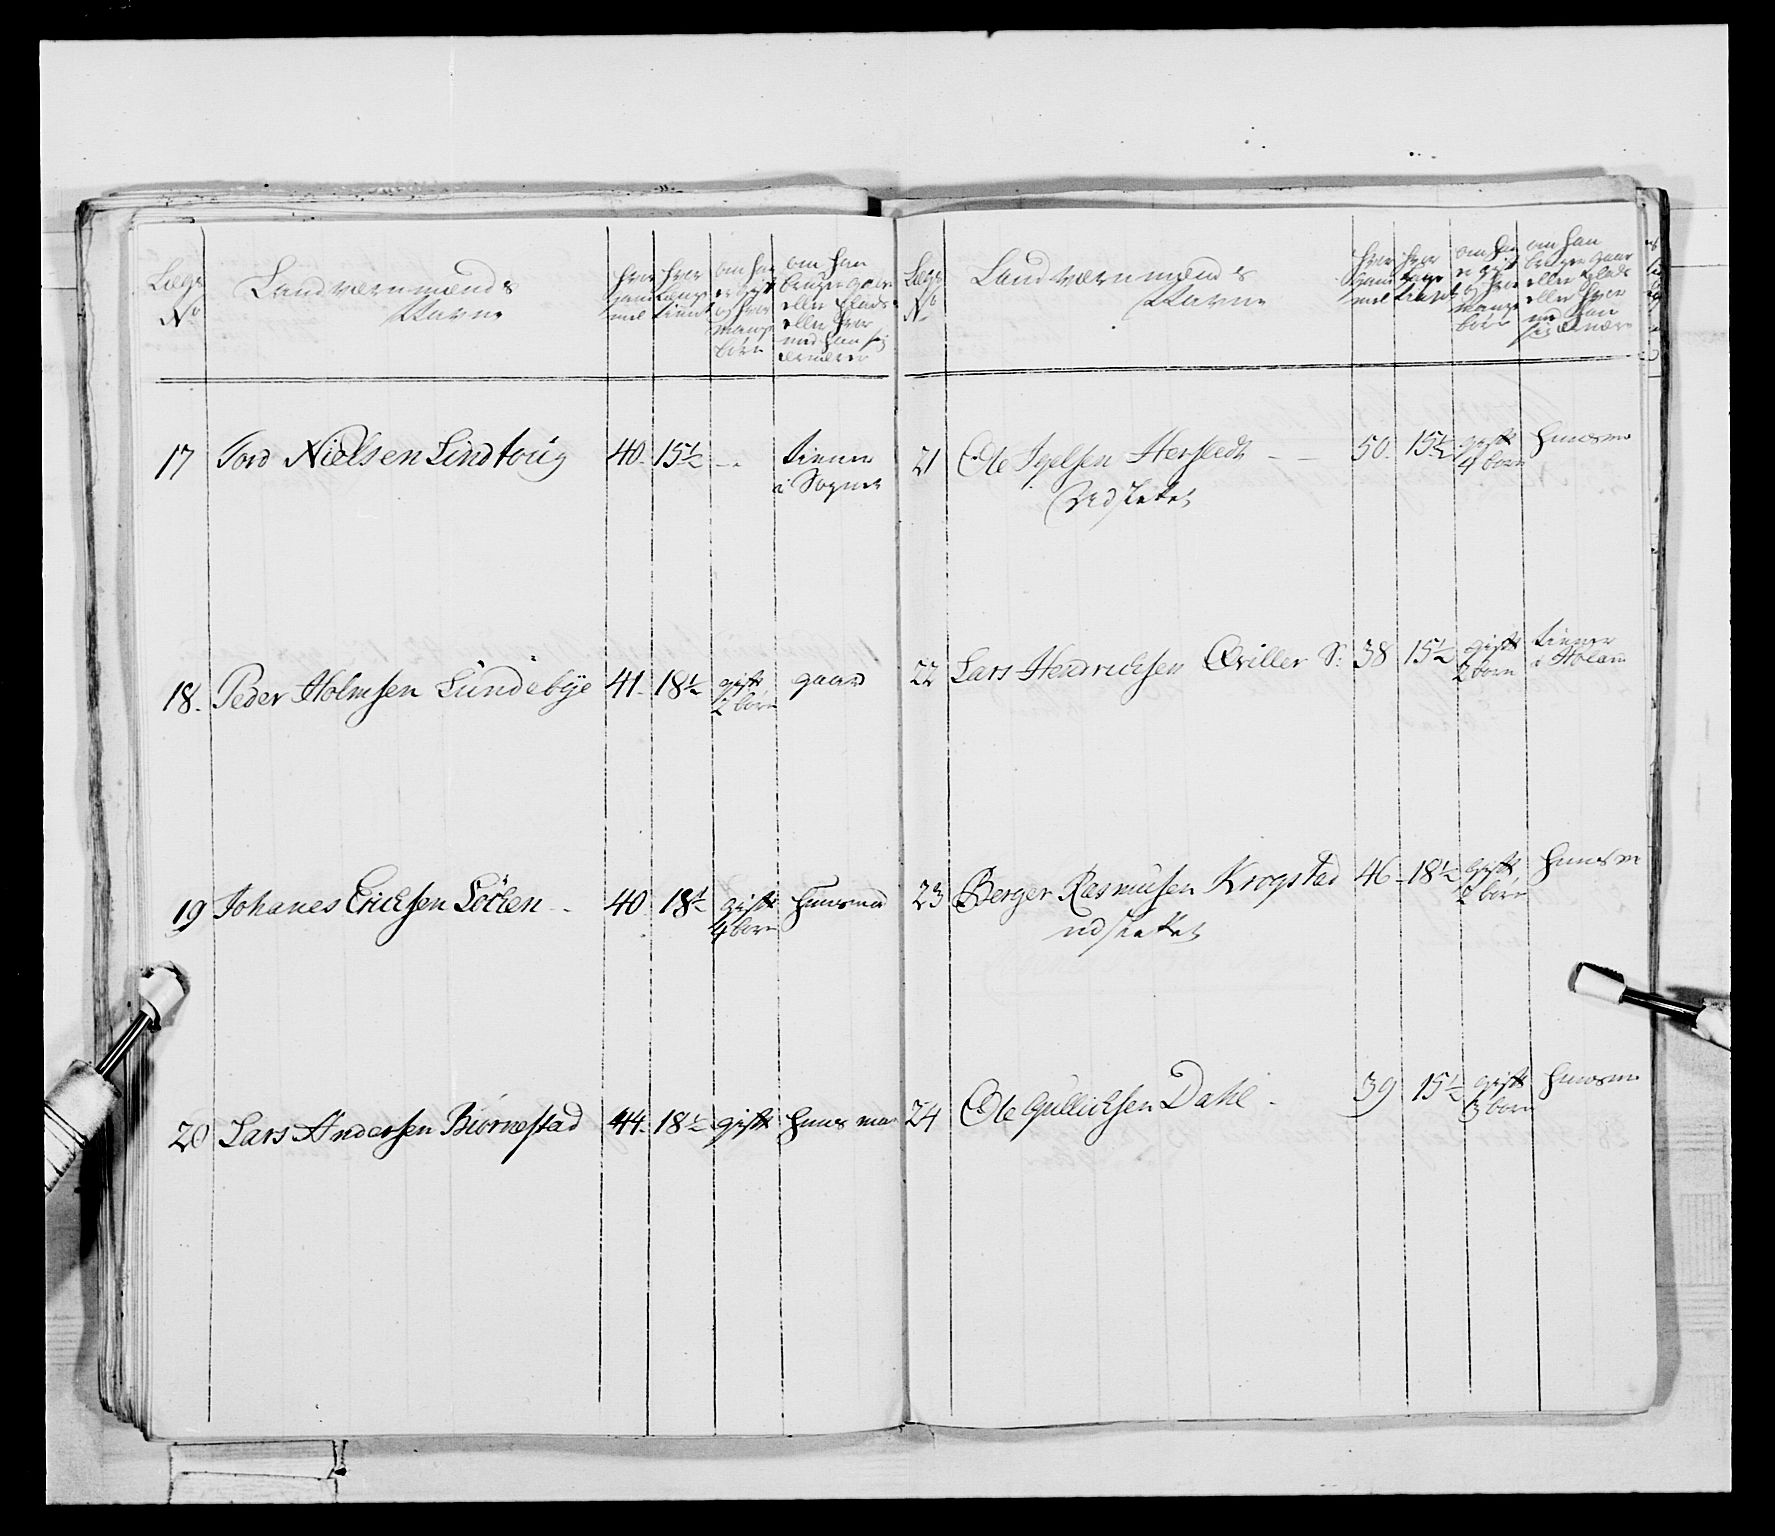 Lægs No
Landværnmænds Navne
hvor gammel
hvor længe tient
om han er gift og hvor mange børn
om han bruger gaard eller plads eller hvor med han sig ernærer
17 Tord Nielsen Lindtoug 40. 15½ -- tiener i Sognet
18. Peder Holmsen Lundebye 41. 18½ gift 2 børn gaard
19 Johanes Ericksen Løcken 40 18½ gift 4 børn huusmand
20 Lars Andersen Biørnestad 44. 18½ gift huusman
Lægs No
Landværnmænds Navne
hvor gammel
hvor længe tient
om han er gift og hvor mange børn
om han bruger gaar eller plads eller hvor med han sig ernær
21 Ole Igelsen Herstedt 50. 15½ gift 4 børn huusm
Udslettet
22 Lars Hendricksen Qviller S: 38 15½ gift 2 børn tiener i Holand
23 Berger Rasmusen Krogstad 46 18½ gift 2 børn huusm
udslettet
24 Ole Gullichsen Dahl 39 15½ gift 3 børn huusm